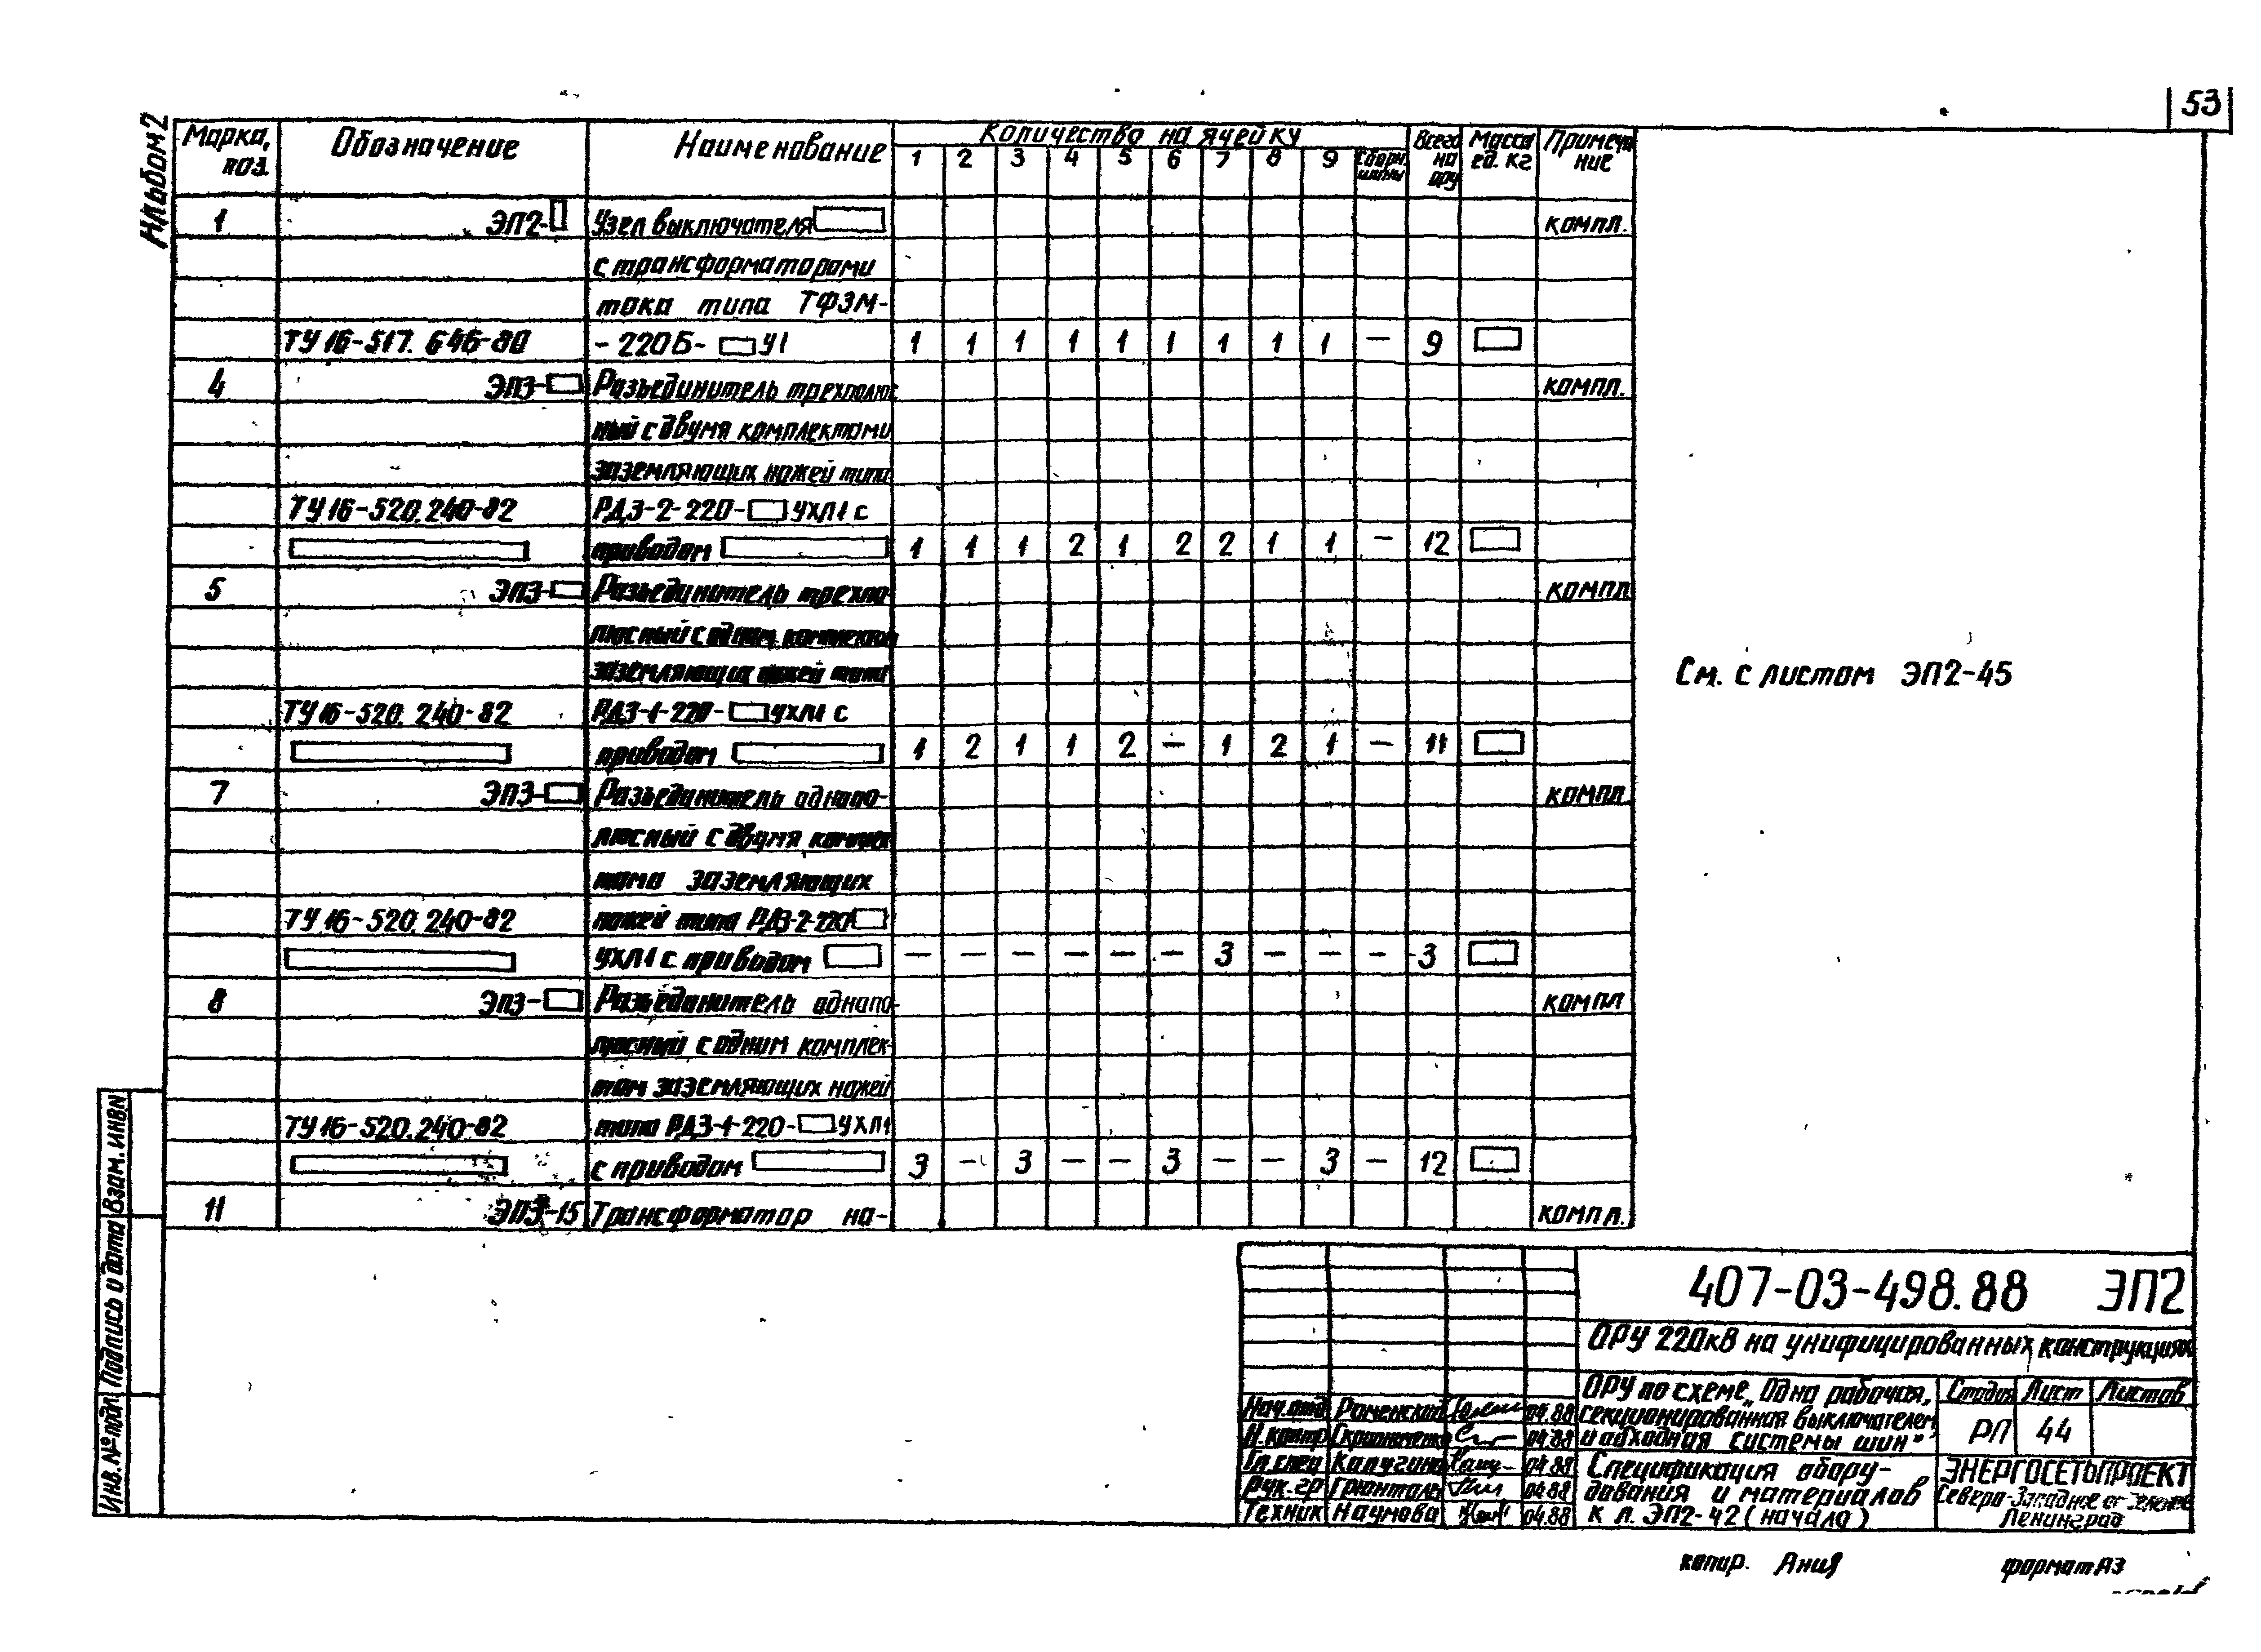 53
Альбом 2
Марка, поз. Обозначение Наименование Количество на ячейку Всего на ОРУ Масса ед. кг Примечание
1 2 3 4 5 6 7 8 9 Сборн. шины
1 ЭП2- Узел выключателя компл.
с трансформаторами
тока типа ТФЗМ-
ТУ16-517.646-80 -220Б- У1 1 1 1 1 1 1 1 1 1 — 9
4 ЭП3- Разъединитель трехполюс компл.
ный с двумя комплектами
заземляющих ножей типа
ТУ16-520.240-82 РДЗ-2-220- УХЛ1 с
приводом 1 1 1 2 1 2 2 1 1 — 12
5 ЭП3- Разъединитель трехпо- компл
люсный с одним комплектом
заземляющих ножей типа
ТУ16-520.240-82 РДЗ-1-220- УХЛ1 с
приводом 1 2 1 1 2 — 1 2 1 — 11
7 ЭП3- Разъединитель однопо- компл
люсный с двумя комплек
тами заземляющих
ТУ16-520.240-82 ножей типа РДЗ-2-220
УХЛ1 с приводом — — — — — — 3 — — — 3
8 ЭП3- Разъединитель однопо- компл
люсный с одним комплек-
том заземляющих ножей
ТУ16-520.240-82 типа РДЗ-1-220- УХЛ1
с приводом 3 — 3 — — 3 — — 3 — 12
11 ЭП3-15 Трансформатор на- компл.
См. с листом ЭП2-45
Инв. № подл. Подпись и дата Взам. инв N
407-03-498.88 ЭП2
ОРУ 220кВ на унифицированных конструкциях
ОРУ по схеме „Одна рабочая,
секционированная выключателем
и обходная системы шин"
Стадия Лист Листов
РП 44
Нач.отд Роменский 04.88
Н.контр 04.88
Гл.спец Калугина 04.88
Рук.гр 04.88
Техник Наумова 04.88
Спецификация обору-
дования и материалов
к л. ЭП2-42 (начало)
ЭНЕРГОСЕТЬПРОЕКТ
Северо-Западное отделение
Ленинград
копир. Ания
формат А3